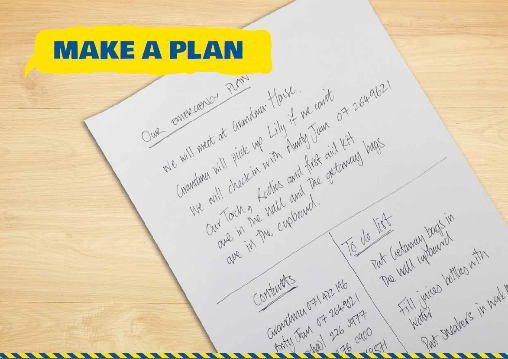 MAKE A PLAN
OUR EMERGENCY PLAN
We will meet at Grandma House.
Grandma will pick up Lily if we cant
We will check in with Aunty Joan 07 264 9621
Our Torch, Radios and first aid kit
are in the hall and the getaway bags
are in the cupboard.
Contacts
Grandma 071 422 196
Aunty Joan 07 264 9621
226 1977
0900
To do list
Put Getaway bags in
the hall cupboard
Fill juice bottles with
water
Put sneakers in work